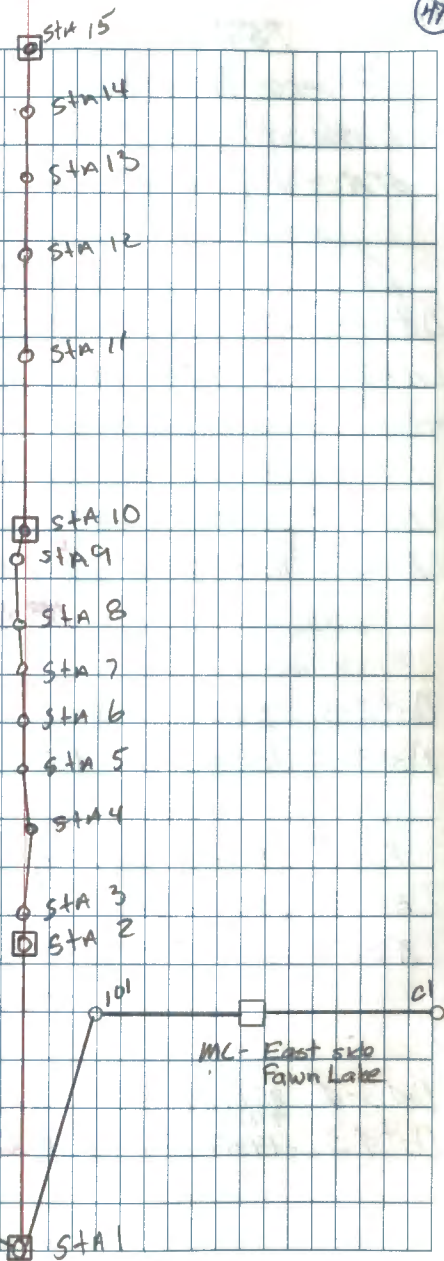 47
StA 15
StA 14
StA 13
StA 12
StA 11
StA 10
StA 9
StA 8
StA 7
StA 6
StA 5
StA 4
StA 3
StA 2
101
C1
MC - East side
Fawn Lake
StA 1